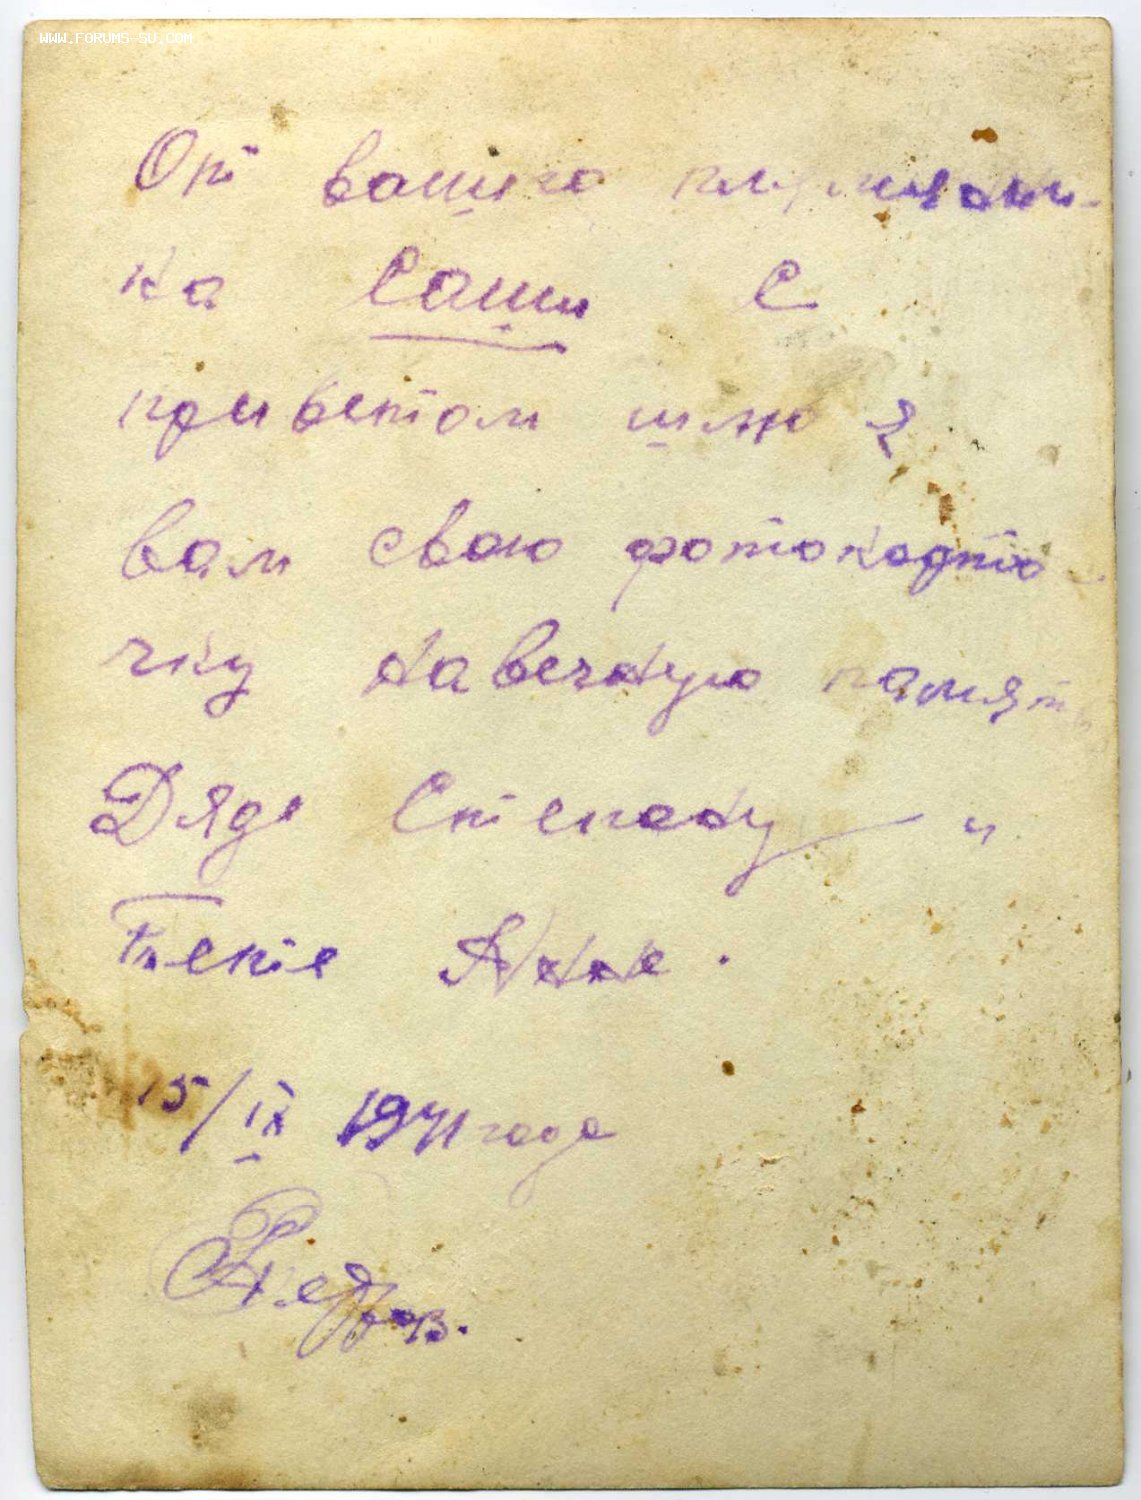 WWW.FORUMS-SU.COM
От вашего племяни-
ка Саши С
приветом шлю я
вам свою фотокарто-
чку на вечную память
Дяде Степану и
Тетке Анне.
15/IX 1941 года